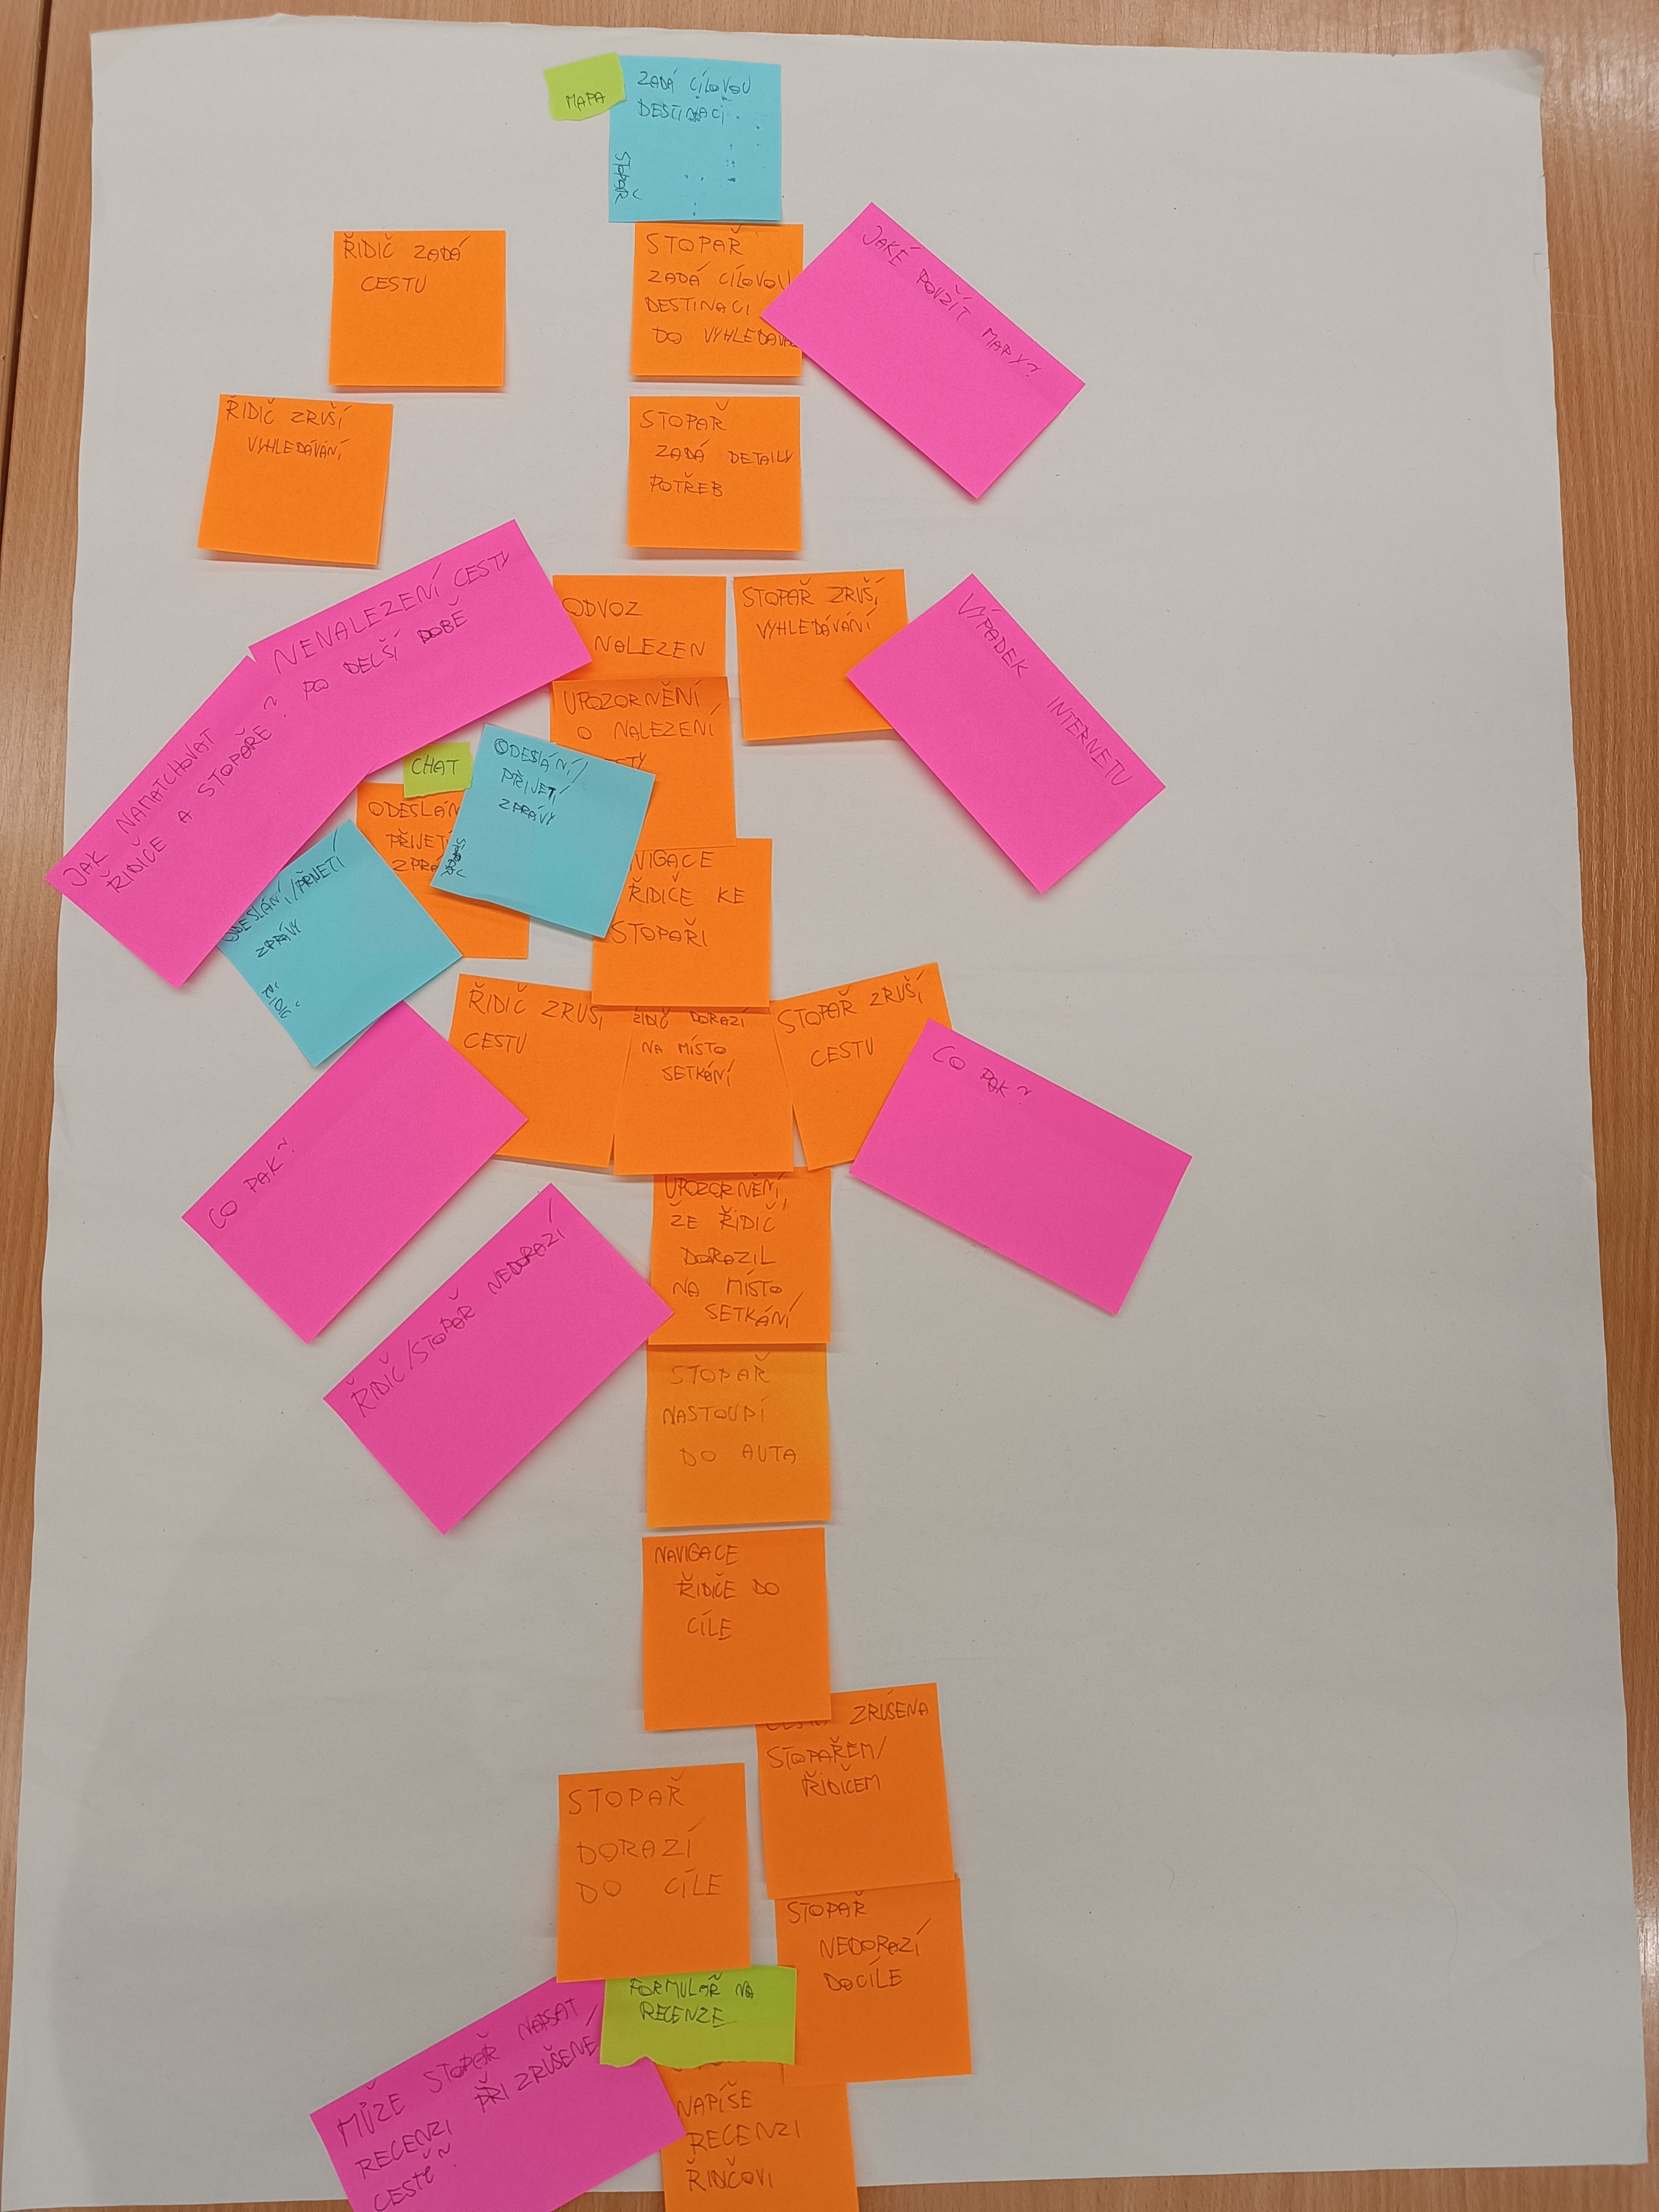 MAPA
ZADÁ CÍLOVOU
DESTINACI
STOPAŘ
ŘIDIČ ZADÁ
CESTU
STOPAŘ
ZADÁ CÍLOVOU
DESTINACI
DO
JAKÉ POUŽÍT MAPY?
ŘIDIČ ZRUŠÍ
VYHLEDÁVÁNÍ
STOPAŘ
ZADÁ DETAILY
POTŘEB
NENALEZENÍ CESTY
PO DELŠÍ DOBĚ
ODVOZ
NALEZEN
STOPAŘ ZRUŠÍ
VYHLEDÁVÁNÍ
VÝPADEK INTERNETU
JAK NAMATCHOVAT
ŘIDIČE A STOPAŘE?
UPOZORNĚNÍ
O NALEZENÍ
CHAT
ODESLÁNÍ/
PŘIJETÍ
ZPRÁVY
ODESLÁN
PŘIJETÍ
ODESLÁNÍ/PŘIJETÍ
ZPRÁVY
ŘIDIČ
VIGACE
ŘIDIČE KE
STOPAŘI
ŘIDIČ ZRUŠÍ
CESTU
ŘIDIČ DORAZÍ
NA MÍSTO
SETKÁNÍ
STOPAŘ ZRUŠÍ
CESTU
CO PAK?
CO PAK?
UPOZORNĚNÍ
ŽE ŘIDIČ
DORAZIL
NA MÍSTO
SETKÁNÍ
ŘIDIČ/STOPAŘ NEDORAZÍ
STOPAŘ
NASTOUPÍ
DO AUTA
NAVIGACE
ŘIDIČE DO
CÍLE
ZRUŠENA
STOPAŘEM/
ŘIDIČEM
STOPAŘ
DORAZÍ
DO CÍLE
STOPAŘ
NEDORAZÍ
DO CÍLE
FORMULÁŘ NA
RECENZE
MŮŽE STOPAŘ NAPSAT
RECENZI PŘI ZRUŠENÉ
CESTĚ?
NAPÍŠE
RECENZI
ŘIDIČOVI